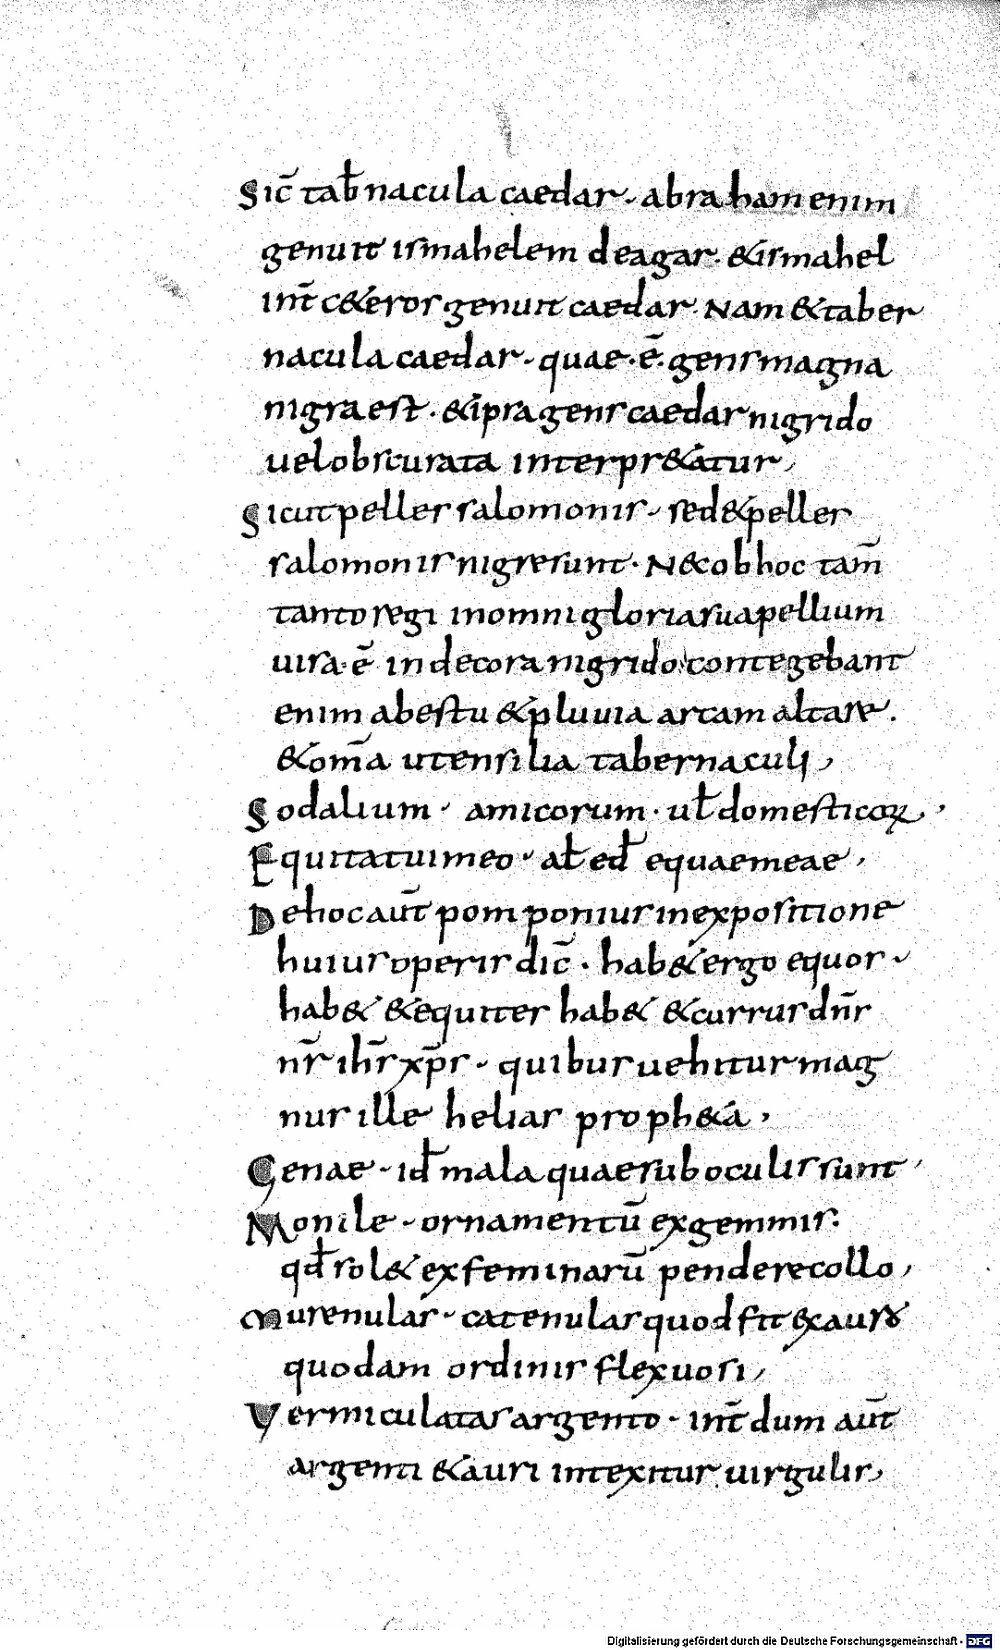 Sic̄ tab̄nacula caedar. abraham enim
genuit ismahelem de agar. & ismahel
int̄ c&eros genuit caedar. Nam & taber
nacula caedar. quae. ē. gens magna
nigra est. & ipsa gens caedar nigrido
uel obscurata interpr&atur,
Sicut pelles salomonis. sed & pelles
salomonis nigre sunt. N& ob hoc tam̄
tanto regi in omni gloria sua pellium
uisa. ē indecora nigrido. contegebant
enim ab estu & pluuia arcam altare.
& om̄a utensilia tabernaculi,
Sodalium. amicorum. ul̄ domesticoꝝ,
Equitatui meo. al̄ ed̄ equae meae,
De hoc aut̄ pomponius in expositione
huius operis dic̄. hab& ergo equos.
hab& & equites hab& & currus dn̄s
nr̄ ih̄s xp̄s. quibus uehitur mag
nus ille helias proph&a,
Genae. id̄ mala quae sub oculis sunt,
Monile. ornamentū ex gemmis.
qd̄ sol& ex feminarū pendere collo,
Murenulas. catenulas quod fit ex auro
quodam ordinis flexuosi,
Vermiculatas argento. int̄dum aut̄
argenti & auri intexitur uirgulis,
Digitalisierung gefördert durch die Deutsche Forschungsgemeinschaft - DFG